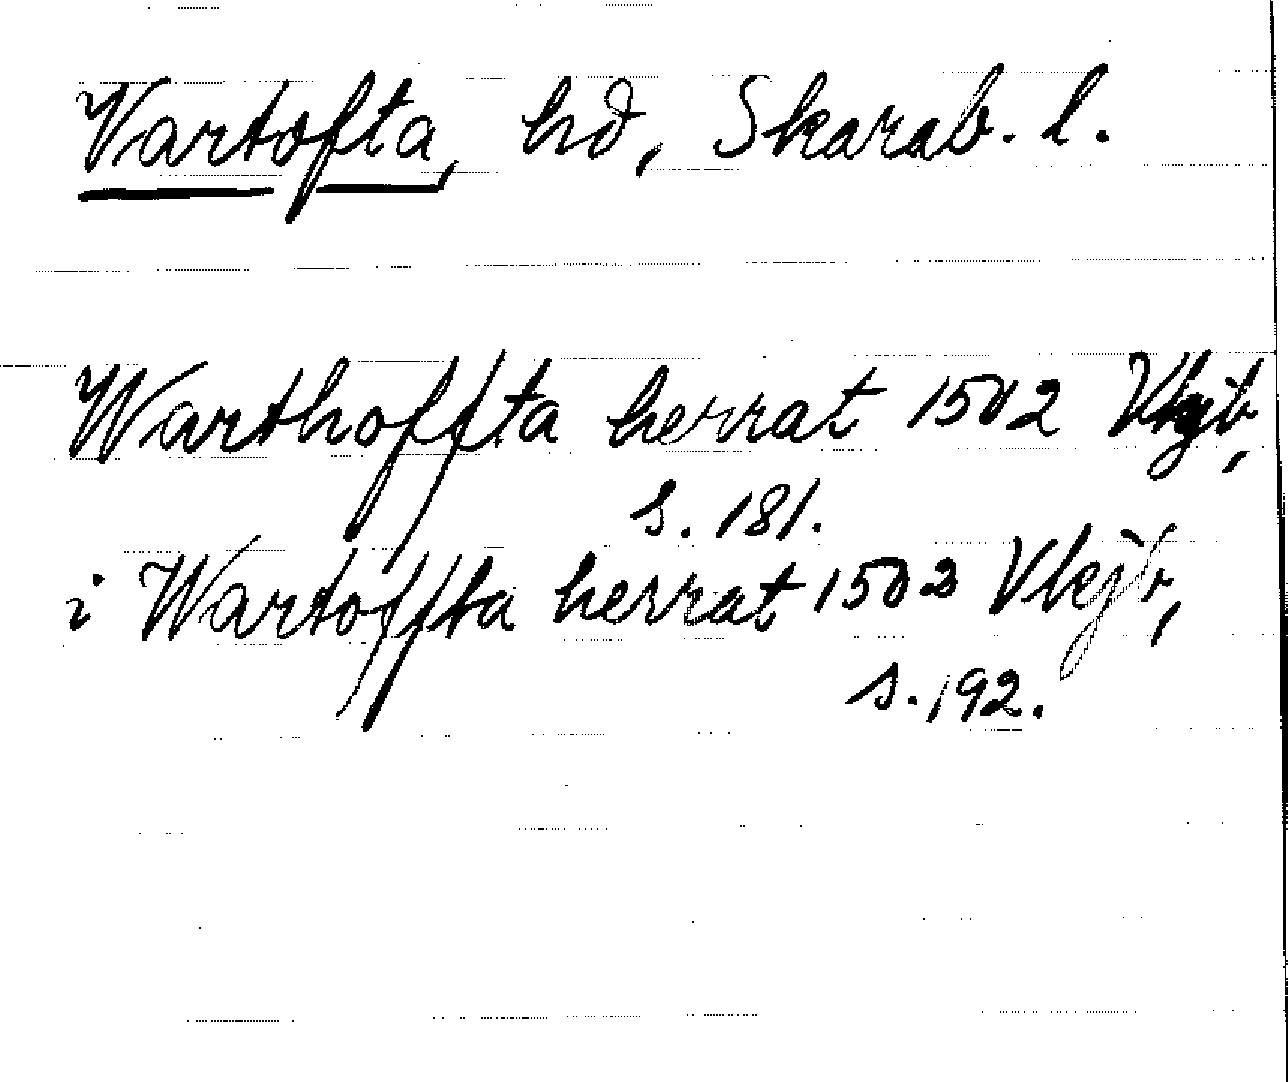 Vartofta, hd, Skarab. l.
Warthoffta herrat 1502 Vkjb,
s. 181.
i Wartoffta herrat 1502 Vkjb,
s. 192.